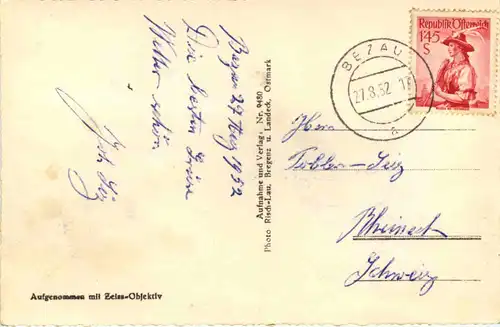 Bezau 27 Aug 1952
Die besten Grüsse
Wetter schön
Aufgenommen mit Zeiss-Objektiv
Aufnahme und Verlag: Nr. 9480
Photo Risch-Lau, Bregenz u. Landeck, Ostmark
Republik Österreich
1·45
S
BEZAU
27.8.52
a
Herrn
Tobler-
Rheineck
Schweiz